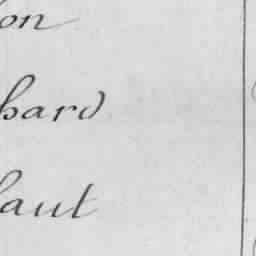 on
hard
aut